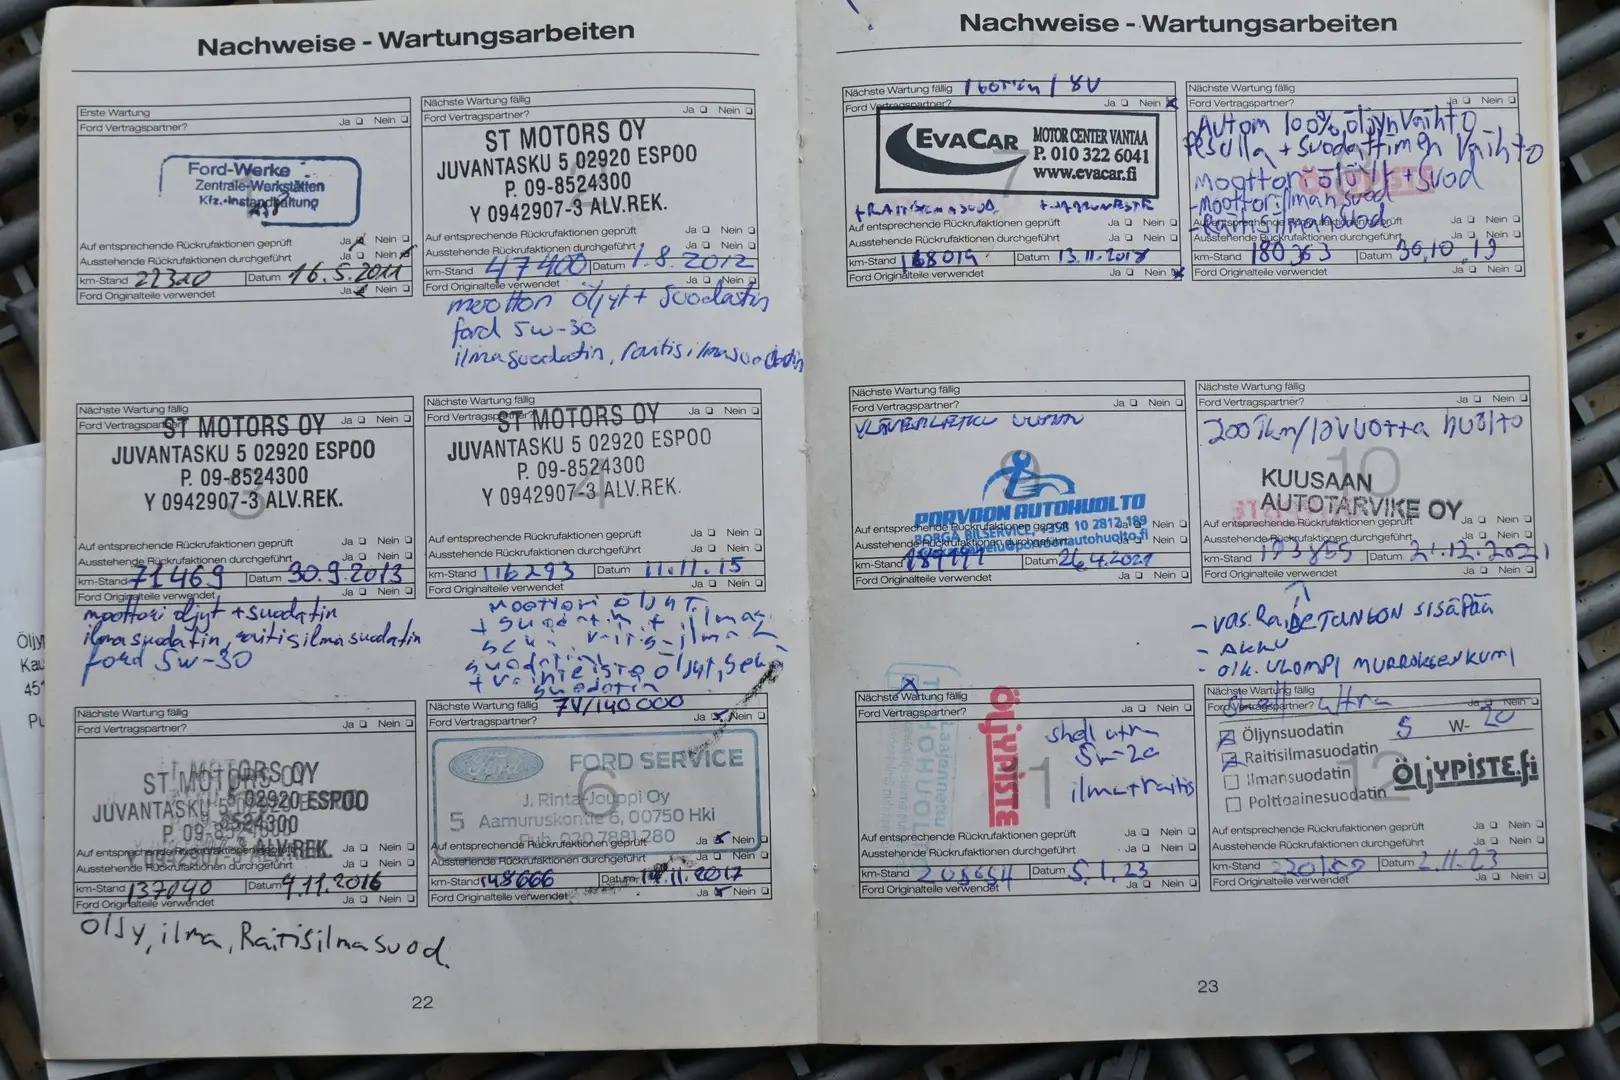 Nachweise - Wartungsarbeiten
Erste Wartung
Ford Vertragspartner? Ja Nein
Ford-Werke
Zentrale-Werkstätten
Kfz.-Instandhaltung
Auf entsprechende Rückrufaktionen geprüft Ja Nein
Ausstehende Rückrufaktionen durchgeführt Ja Nein
km-Stand 22310 Datum 16.5.2011
Ford Originalteile verwendet Ja Nein
Nächste Wartung fällig
Ford Vertragspartner? Ja Nein
ST MOTORS OY
JUVANTASKU 5 02920 ESPOO
P. 09-8524300
Y 0942907-3 ALV.REK.
Auf entsprechende Rückrufaktionen geprüft Ja Nein
Ausstehende Rückrufaktionen durchgeführt Ja Nein
km-Stand 47400 Datum 1.8.2012
Ford Originalteile verwendet Ja Nein
moottori öljyt + suodatin
ford 5w-30
ilmasuodatin, raitisilmasuodatin
Nächste Wartung fällig
Ford Vertragspartner? Ja Nein
ST MOTORS OY
JUVANTASKU 5 02920 ESPOO
P. 09-8524300
Y 0942907-3 ALV.REK.
3
Auf entsprechende Rückrufaktionen geprüft Ja Nein
Ausstehende Rückrufaktionen durchgeführt Ja Nein
km-Stand 71469 Datum 30.9.2013
Ford Originalteile verwendet Ja Nein
moottori öljyt + suodatin
ilmasuodatin, raitisilmasuodatin
ford 5w-30
Nächste Wartung fällig
Ford Vertragspartner? Ja Nein
ST MOTORS OY
JUVANTASKU 5 02920 ESPOO
P. 09-8524300
Y 0942907-3 ALV.REK.
4
Auf entsprechende Rückrufaktionen geprüft Ja Nein
Ausstehende Rückrufaktionen durchgeführt Ja Nein
km-Stand 116293 Datum 11.11.15
Ford Originalteile verwendet Ja Nein
moottori öljyt
+ suodatin + ilma
suodatin
suodatin
Nächste Wartung fällig
Ford Vertragspartner? Ja Nein
ST MOTORS OY
JUVANTASKU 5 02920 ESPOO
P. 09-8524300
Y 0942907-3 ALV.REK.
Auf entsprechende Rückrufaktionen geprüft Ja Nein
Ausstehende Rückrufaktionen durchgeführt Ja Nein
km-Stand 137040 Datum 9.11.2016
Ford Originalteile verwendet Ja Nein
Öljy, ilma, Raitisilmasuod.
Nächste Wartung fällig 7V/140 000
Ford Vertragspartner? Ja Nein
Ford
FORD SERVICE
6
J. Rinta-Jouppi Oy
5 Aamuruskontie 6, 00750 Hki
Puh. 020 7881 280
Auf entsprechende Rückrufaktionen geprüft Ja Nein
Ausstehende Rückrufaktionen durchgeführt Ja Nein
km-Stand 148666 Datum 14.11.2017
Ford Originalteile verwendet Ja Nein
22
Nachweise - Wartungsarbeiten
Nächste Wartung fällig
Ford Vertragspartner? Ja Nein
EVACAR
MOTOR CENTER VANTAA
P. 010 322 6041
www.evacar.fi
7
Auf entsprechende Rückrufaktionen geprüft Ja Nein
Ausstehende Rückrufaktionen durchgeführt Ja Nein
km-Stand 168019 Datum 13.11.2018
Ford Originalteile verwendet Ja Nein
Nächste Wartung fällig
Ja Nein
Autom 100% öljynvaihto
Pesulla + suodattimen vaihto
moottoröljyt + suod
- moottorilmansuod
- Raitisilmansuod
Ausstehende Rückrufaktionen durchgeführt Ja Nein
km-Stand 180363 Datum 30,10,19
Ford Originalteile verwendet Ja Nein
Nächste Wartung fällig
Ford Vertragspartner? Ja Nein
9
PORVOON AUTOHUOLTO
BORGÅ BILSERVICE, +358 10 2812 189
Auf entsprechende Rückrufaktionen geprüft Ja Nein
Ausstehende Rückrufaktionen durchgeführt Ja Nein
km-Stand Datum 26.4.2021
Ford Originalteile verwendet Ja Nein
Nächste Wartung fällig
Ford Vertragspartner? Ja Nein
200 tkm/1avuotta huolto
10
KUUSAAN
AUTOTARVIKE OY
Auf entsprechende Rückrufaktionen geprüft Ja Nein
Ausstehende Rückrufaktionen durchgeführt Ja Nein
km-Stand 193855 Datum 21.12.2021
Ford Originalteile verwendet Ja Nein
- VAS. RAIDETANGON SISÄPÄÄ
- AKKU
- OIK. ULOMPI MURROKSENKUMI
Nächste Wartung fällig
Ford Vertragspartner? Ja Nein
ÖLJYPISTE
11
shell ultra
5w-20
ilma+raitis
Auf entsprechende Rückrufaktionen geprüft Ja Nein
Ausstehende Rückrufaktionen durchgeführt Ja Nein
km-Stand Datum 5.1.23
Ford Originalteile verwendet Ja Nein
Nächste Wartung fällig
Ford Vertragspartner? Ja Nein
Shell ultra
Öljynsuodatin 5 W- 20
Raitisilmasuodatin
Ilmansuodatin
Polttoainesuodatin
ÖLJYPISTE.fi
12
Auf entsprechende Rückrufaktionen geprüft Ja Nein
Ausstehende Rückrufaktionen durchgeführt Ja Nein
km-Stand Datum 2.11.23
Ford Originalteile verwendet Ja Nein
23